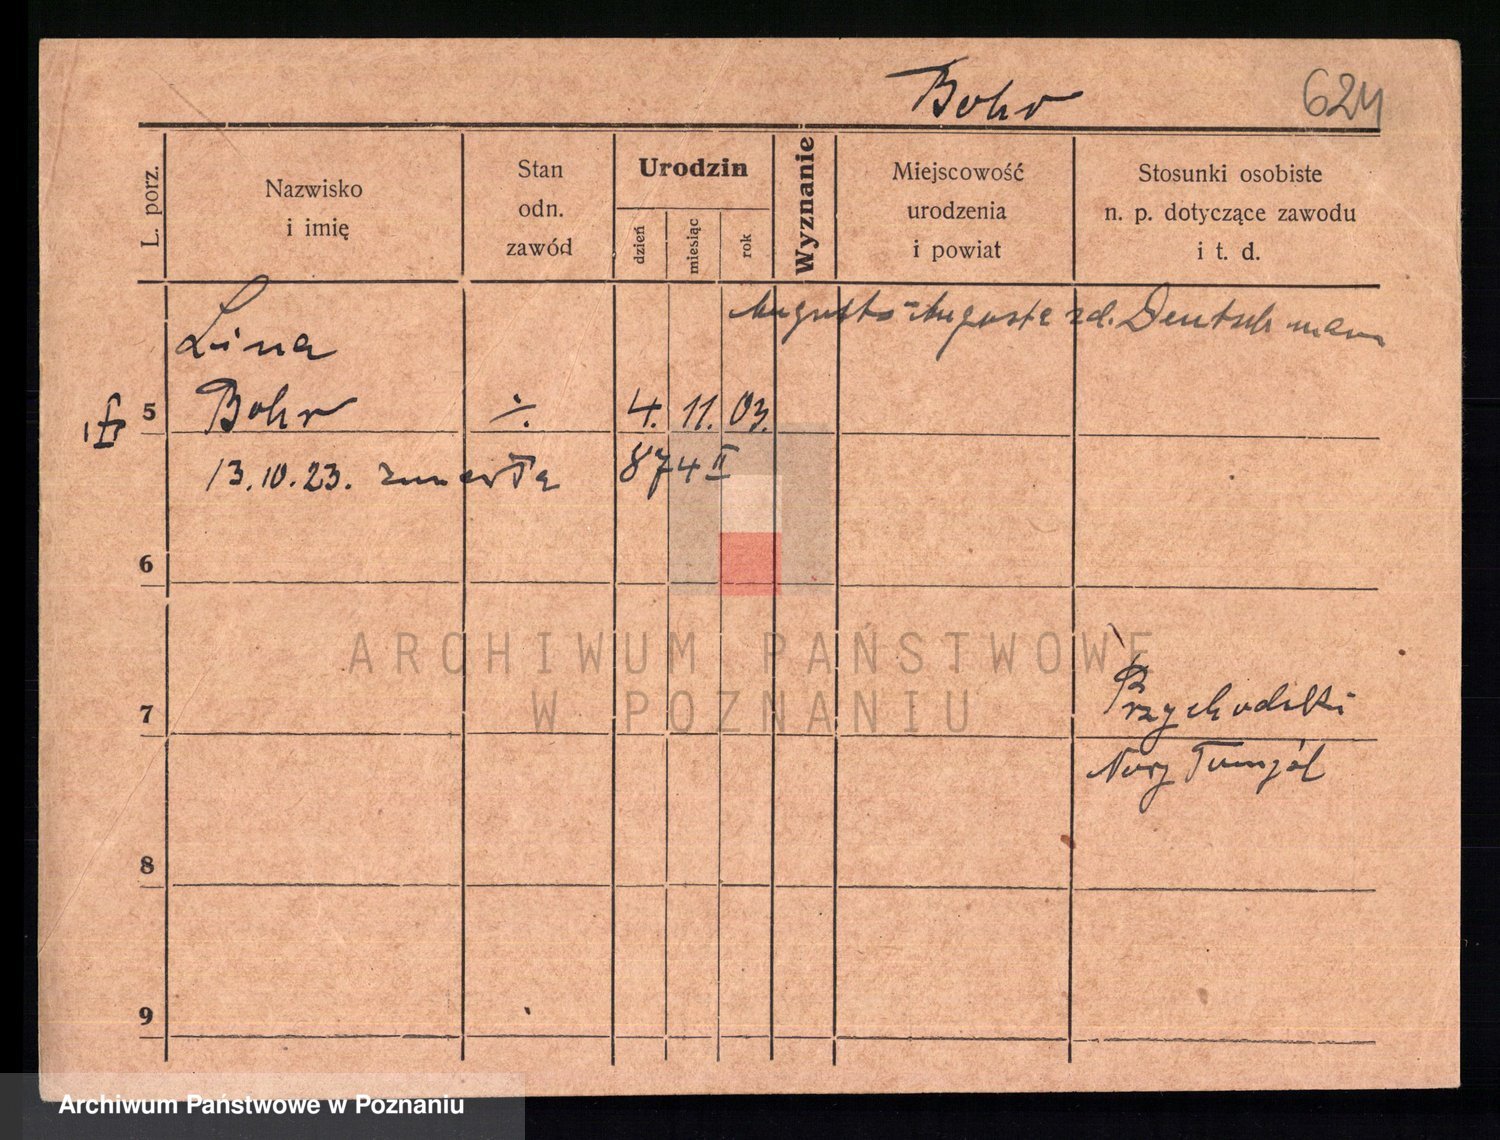 Bohr 624
L. porz.
Nazwisko
i imię
Stan
odn.
zawód
Urodzin
dzień
miesiąc
rok
Wyznanie
Miejscowość
urodzenia
i powiat
Stosunki osobiste
n. p. dotyczące zawodu
i t. d.
Augusta zd. Deutschmann
Lina
5 Bohr ./. 4. 11. 03.
13.10.23. zmarła 874 II
6
ARCHIWUM PAŃSTWOWE
W POZNANIU
Przychodzki
7
Nowy Tomyśl
8
9
Archiwum Państwowe w Poznaniu